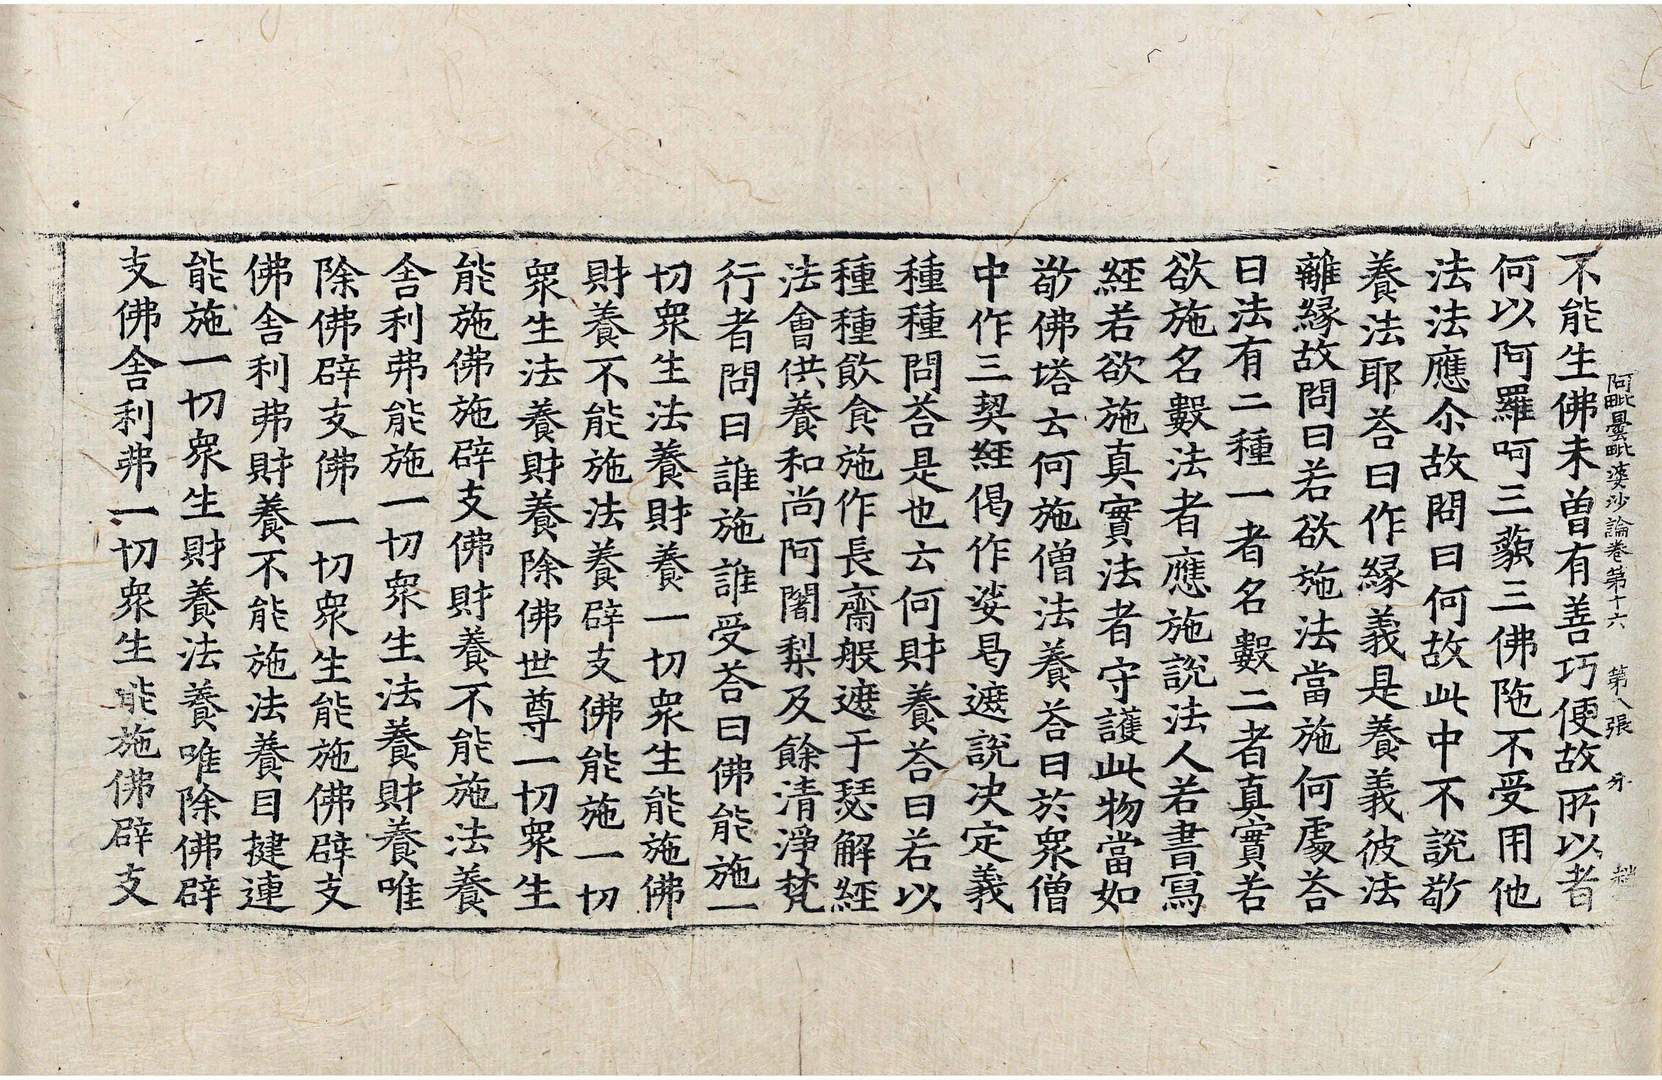 阿毗曇毗婆沙論卷第十六 第八張 分
不能生佛未曾有善巧便故所以者
何以阿羅呵三藐三佛陁不受用他
法法應尒故問曰何故此中不說敬
養法耶荅曰作緣義是養義彼法
離緣故問曰若欲施法當施何處荅
曰法有二種一者名數二者真實若
欲施名數法者應施說法人若書寫
經若欲施真實法者守護此物當如
敬佛塔云何施僧法養荅曰於眾僧
中作三契經偈作娑曷遮說決定義
種種問荅是也云何財養荅曰若以
種種飲食施作長齋般遮于瑟解經
法會供養和尚阿闍梨及餘清淨梵
行者問曰誰施誰受荅曰佛能施一
切眾生法養財養一切眾生能施佛
財養不能施法養辟支佛能施一切
眾生法養財養除佛世尊一切眾生
能施佛施辟支佛財養不能施法養
舍利弗能施一切眾生法養財養唯
除佛辟支佛一切眾生能施佛辟支
佛舍利弗財養不能施法養目揵連
能施一切眾生財養法養唯除佛辟
支佛舍利弗一切眾生能施佛辟支